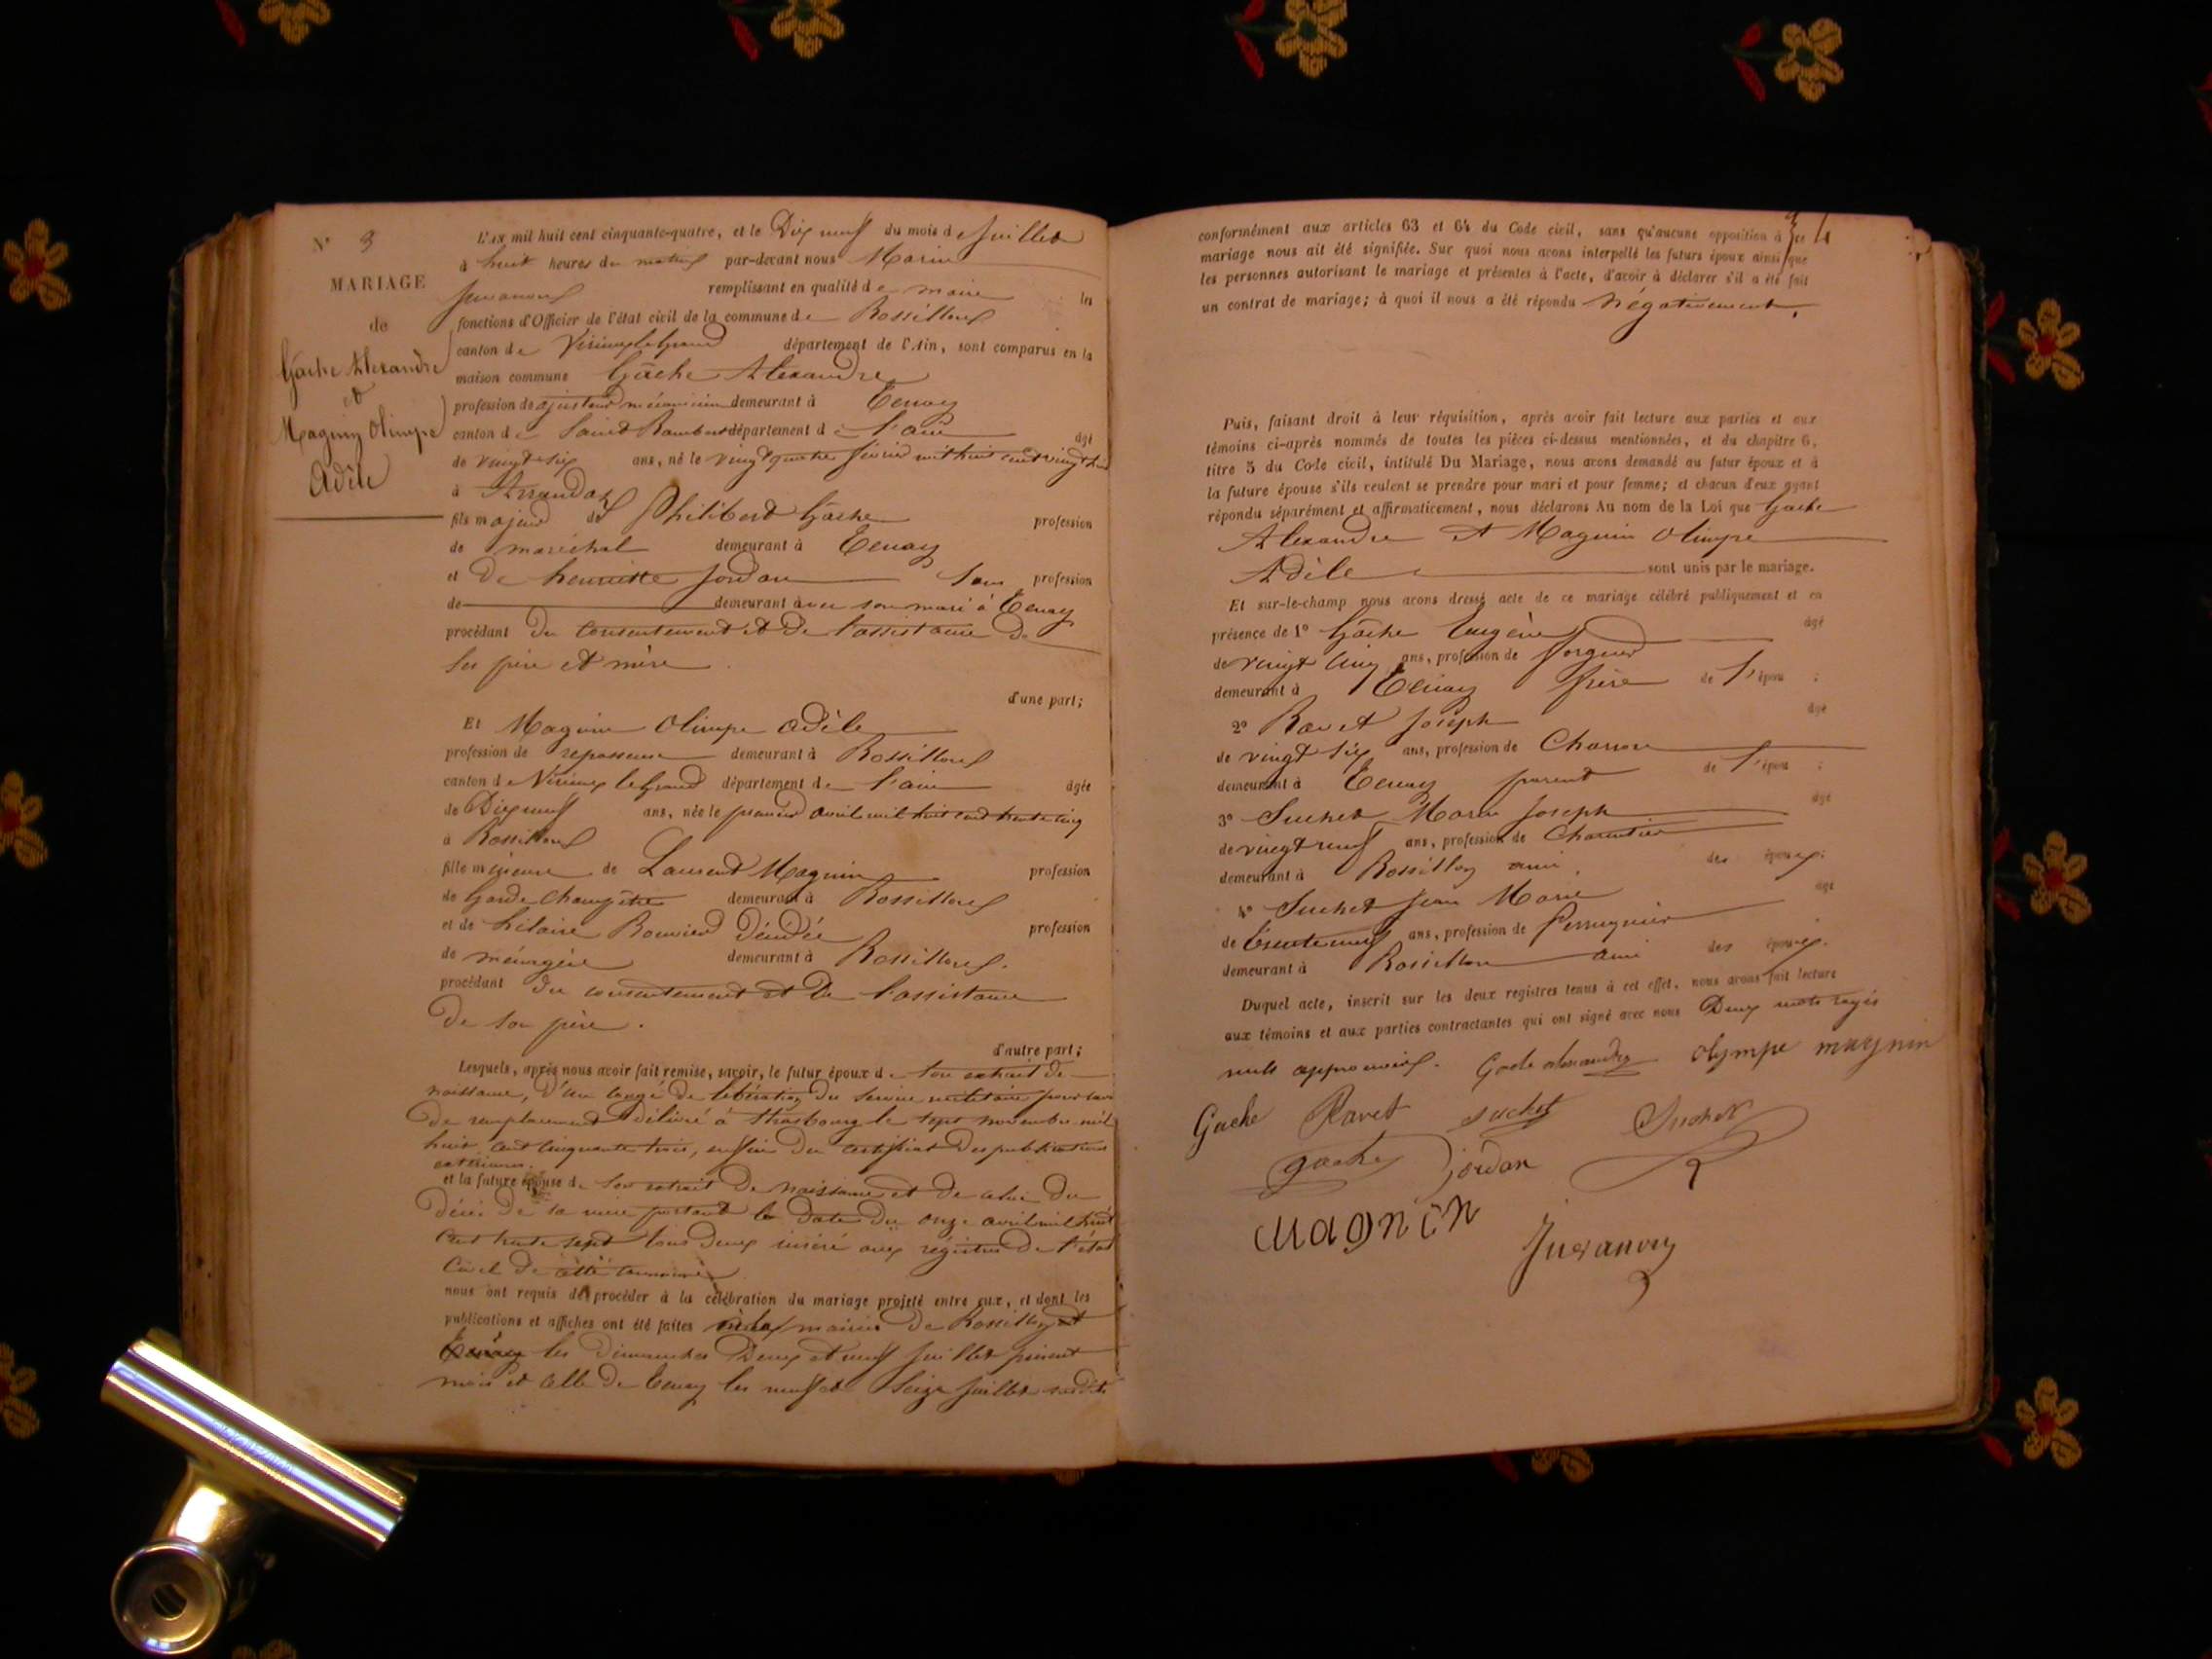 N° 3
MARIAGE
de
Gâche Alexandre
et
Magnin Olimpe
Adèle
L'an mil huit cent cinquante-quatre, et le Dix neuf du mois de Juillet
à huit heures du matin par-devant nous Marin
Juvanon remplissant en qualité de maire les
fonctions d'Officier de l'état civil de la commune de Rossillon
canton de Virieu le grand département de l'Ain, sont comparus en la
maison commune Gâche Alexandre
profession de ajusteur mécanicien demeurant à Tenay
canton de Saint Rambert département de l'ain âgé
de vingt six ans, né le vingt quatre février mil huit cent vingt huit
à Arandas
fils majeur de Philibert Gâche profession
de maréchal demeurant à Tenay
et De henriette Jordan Sans profession
de demeurant avec son mari à Tenay
procédant du consentement et de l'assistance de
ses père et mère
d'une part;
Et Magnin Olimpe Adèle
profession de repasseuse demeurant à Rossillon
canton de Virieu le grand département de l'ain âgée
de Dix neuf ans, née le premier avril mil huit cent trente cinq
à Rossillon
fille mineure de Laurent Magnin profession
de Garde Champêtre demeurant à Rossillon
et de hilaire Bouvier Décédée profession
de ménagère demeurant à Rossillon.
procédant du consentement et de l'assistance
De son père.
d'autre part;
Lesquels, après nous avoir fait remise, savoir, le futur époux de son extrait de
naissance, D'un congé de libération du service militaire pour
De remplacement délivré à Strasbourg le sept novembre mil
huit cent cinquante trois, enfin du certificat des publications
extérieures.
et la future épouse de son extrait de naissance et de celui du
décès de sa mère portant la date du onze avril mil huit
cent trente sept tous deux inséré aux registres de l'état
civil de cette commune
nous ont requis de procéder à la célébration du mariage projeté entre eux, et dont les
publications et affiches ont été faites mairie de Rossillon et
Tenay les dimanches Deux et neuf Juillet présent
mois et celle de Tenay les neuf et Seize Juillet susdits
conformément aux articles 63 et 64 du Code civil, sans qu'aucune opposition à ce
mariage nous ait été signifiée. Sur quoi nous avons interpellé les futurs époux ainsi que
les personnes autorisant le mariage et présentes à l'acte, d'avoir à déclarer s'il a été fait
un contrat de mariage; à quoi il nous a été répondu négativement.
Puis, faisant droit à leur réquisition, après avoir fait lecture aux parties et aux
témoins ci-après nommés de toutes les pièces ci-dessus mentionnées, et du chapitre 6,
titre 5 du Code civil, intitulé Du Mariage, nous avons demandé au futur époux et à
la future épouse s'ils veulent se prendre pour mari et pour femme; et chacun d'eux ayant
répondu séparément et affirmativement, nous déclarons Au nom de la Loi que Gache
Alexandre et Magnin Olimpe
Adèle sont unis par le mariage.
Et sur-le-champ nous avons dressé acte de ce mariage célébré publiquement et en
présence de 1° Gâche Eugène âgé
de vingt cinq ans, profession de forgeur
demeurant à Tenay frère de l'épou ;
2° Ravet Joseph âgé
de vingt six ans, profession de Charron
demeurant à Tenay parent de l'épou ;
3° Suchet Marin Joseph âgé
de vingt neuf ans, profession de Charpentier
demeurant à Rossillon ami des époux;
4° Suchet Jean Marie âgé
de trente neuf ans, profession de Perruquier
demeurant à Rossillon ami des époux.
Duquel acte, inscrit sur les deux registres tenus à cet effet, nous avons fait lecture
aux témoins et aux parties contractantes qui ont signé avec nous Deux mots rayés
nuls approuvés. Gache alexandre olympe magnin
Gache Ravet suchet Suchet
gache jordan
MAGNIN
Juvanon